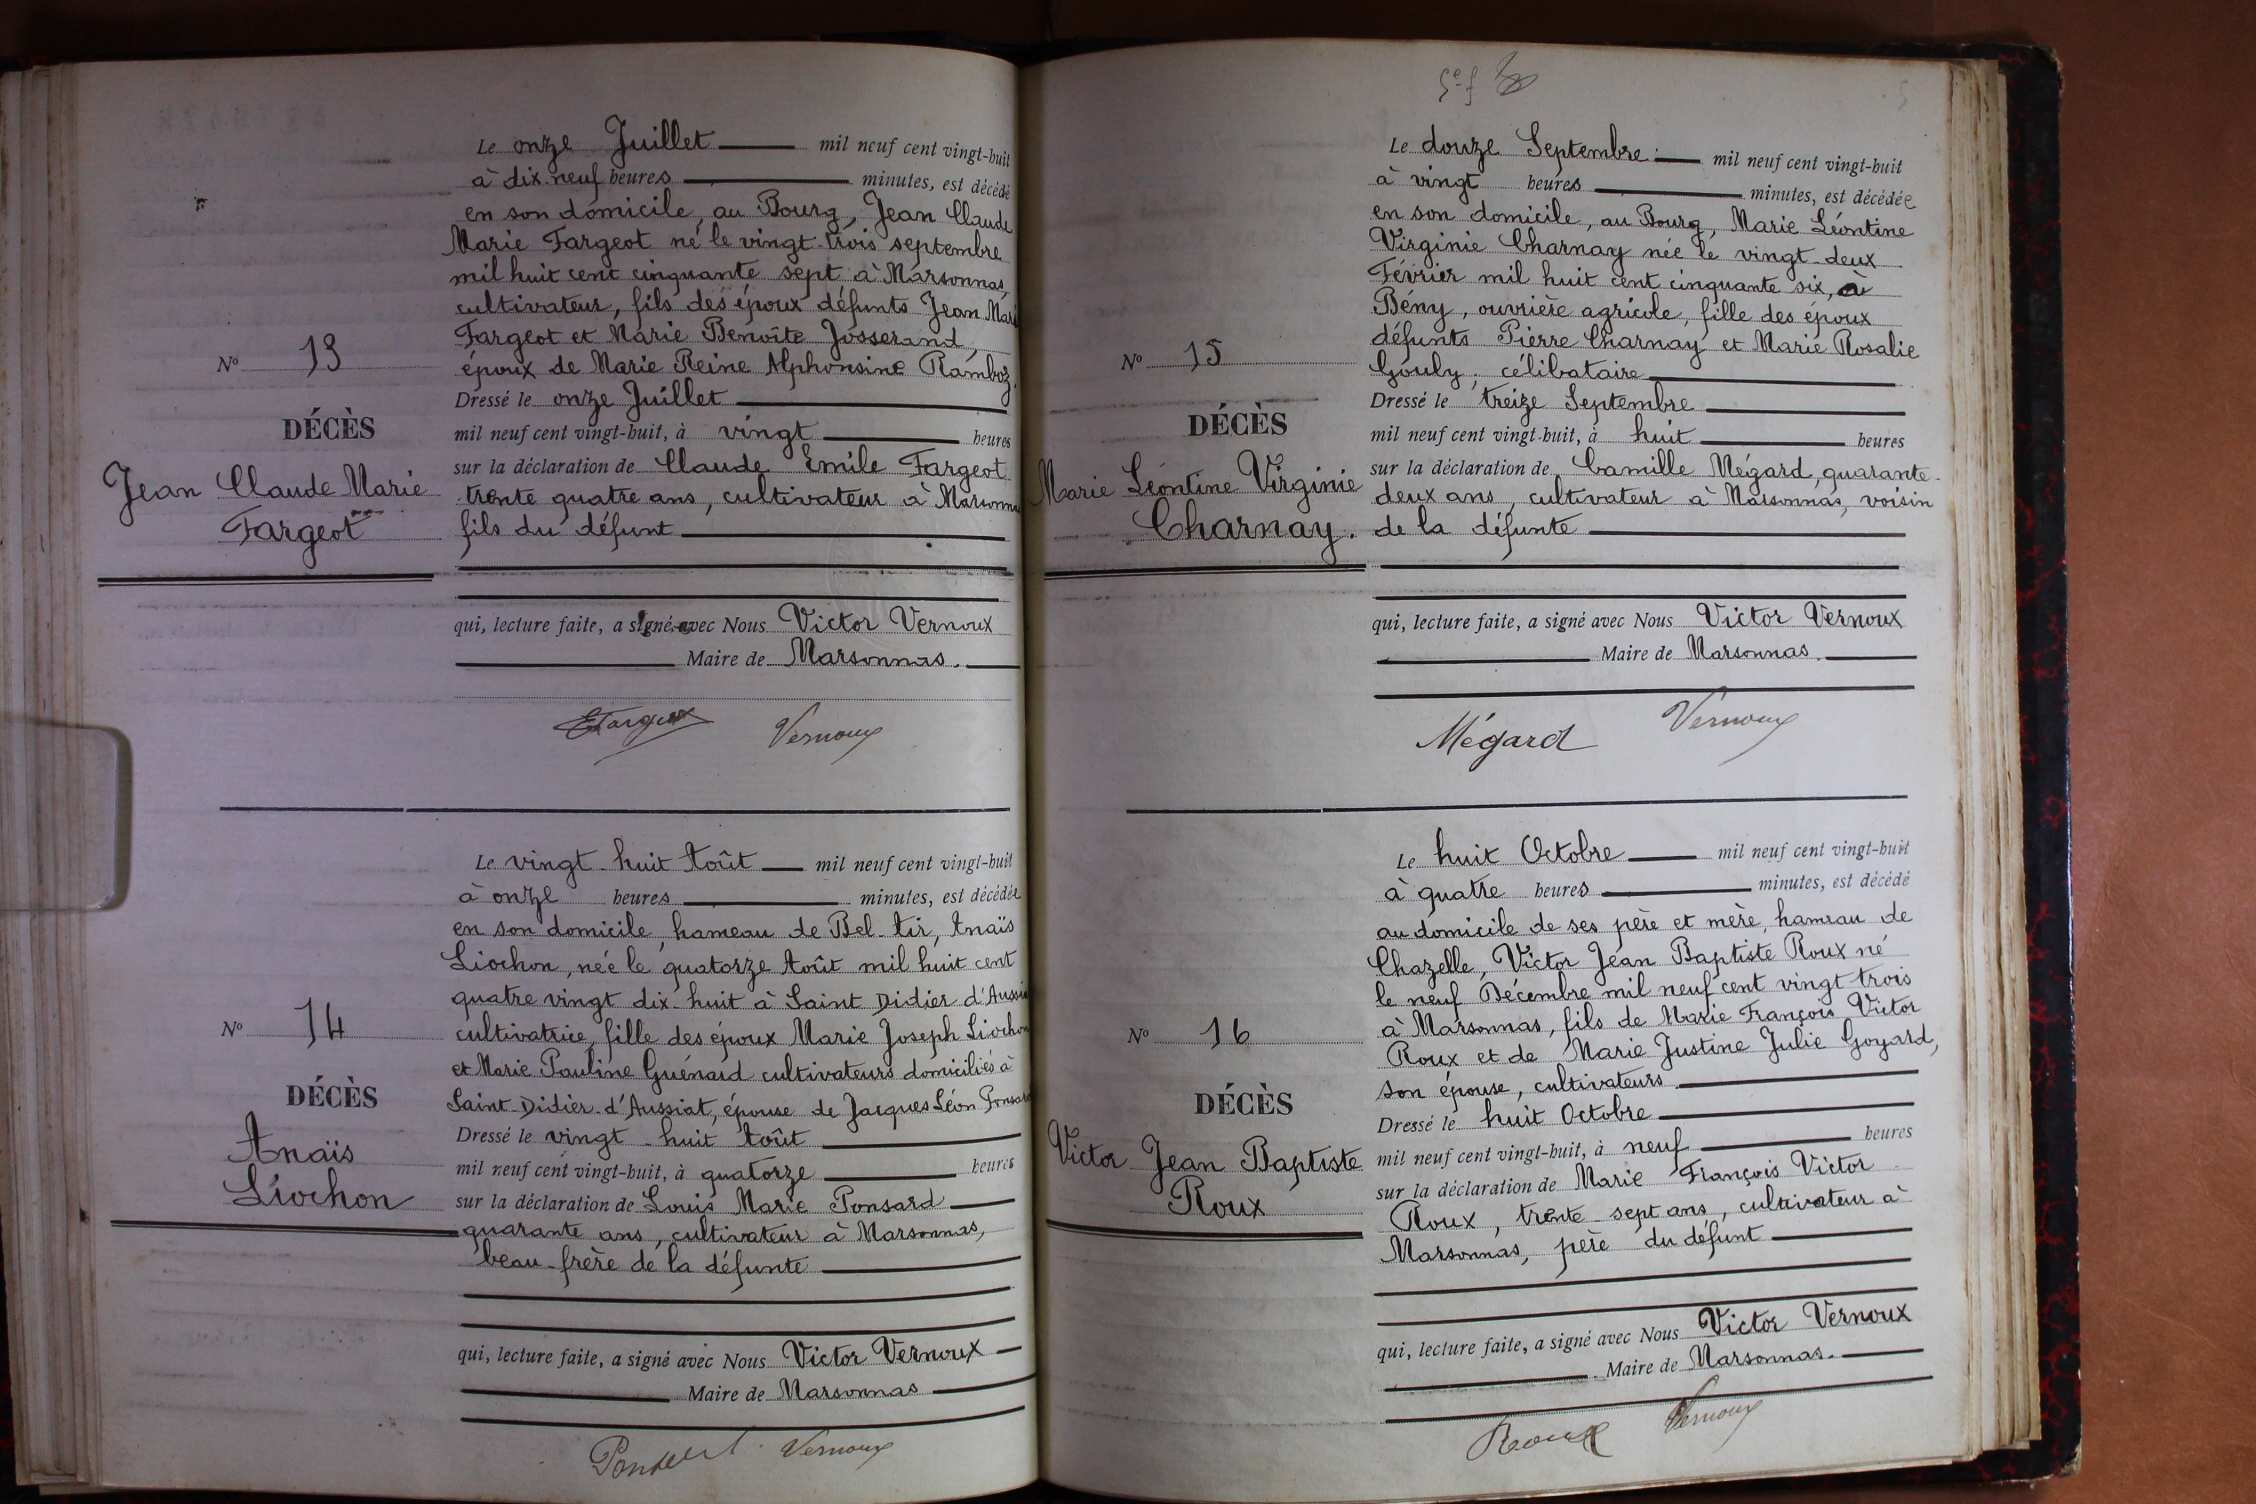 Le onze Juillet mil neuf cent vingt-huit
à dix-neuf heures minutes, est décédé
en son domicile, au Bourg, Jean Claude
Marie Fargeot né le vingt-trois septembre
mil huit cent cinquante sept à Marsonnas,
cultivateur, fils des époux défunts Jean Marie
Fargeot et Marie Benoîte Josserand,
époux de Marie Reine Alphonsine Ramboz.
Dressé le onze Juillet
mil neuf cent vingt-huit, à vingt heures
sur la déclaration de Claude Emile Fargeot
trente quatre ans, cultivateur à Marsonnas
fils du défunt
qui, lecture faite, a signé avec Nous Victor Vernoux
Maire de Marsonnas.
N° 13
DÉCÈS
Jean Claude Marie
Fargeot
EFargeot Vernoux
Le vingt-huit Août mil neuf cent vingt-huit
à onze heures minutes, est décédée
en son domicile, hameau de Bel-Air, Anaïs
Liochon, née le quatorze Août mil huit cent
quatre vingt dix-huit à Saint Didier d'Aussiat
cultivatrice, fille des époux Marie Joseph Liochon
et Marie Pauline Guénard cultivateurs domiciliés à
Saint-Didier-d'Aussiat, épouse de Jacques Léon Ponsard
Dressé le vingt-huit Août
mil neuf cent vingt-huit, à quatorze heures
sur la déclaration de Louis Marie Ponsard
quarante ans, cultivateur à Marsonnas,
beau-frère de la défunte
qui, lecture faite, a signé avec Nous Victor Vernoux
Maire de Marsonnas
N° 14
DÉCÈS
Anaïs
Liochon
Ponsard Vernoux
Le douze Septembre mil neuf cent vingt-huit
à vingt heures minutes, est décédée
en son domicile, au Bourg, Marie Léontine
Virginie Charnay née le vingt-deux
Février mil huit cent cinquante six, à
Bény, ouvrière agricole, fille des époux
défunts Pierre Charnay et Marie Rosalie
Gouly, célibataire
Dressé le treize Septembre
mil neuf cent vingt-huit, à huit heures
sur la déclaration de Camille Mégard, quarante-
deux ans, cultivateur à Marsonnas, voisin
de la défunte
qui, lecture faite, a signé avec Nous Victor Vernoux
Maire de Marsonnas.
N° 15
DÉCÈS
Marie Léontine Virginie
Charnay.
Mégard Vernoux
Le huit Octobre mil neuf cent vingt-huit
à quatre heures minutes, est décédé
au domicile de ses père et mère, hameau de
Chazelle, Victor Jean Baptiste Roux né
le neuf Décembre mil neuf cent vingt-trois
à Marsonnas, fils de Marie François Victor
Roux et de Marie Justine Julie Goyard,
son épouse, cultivateurs
Dressé le huit Octobre
mil neuf cent vingt-huit, à neuf heures
sur la déclaration de Marie François Victor
Roux, trente-sept ans, cultivateur à
Marsonnas, père du défunt
qui, lecture faite, a signé avec Nous Victor Vernoux
Maire de Marsonnas.
N° 16
DÉCÈS
Victor Jean Baptiste
Roux
Roux Vernoux